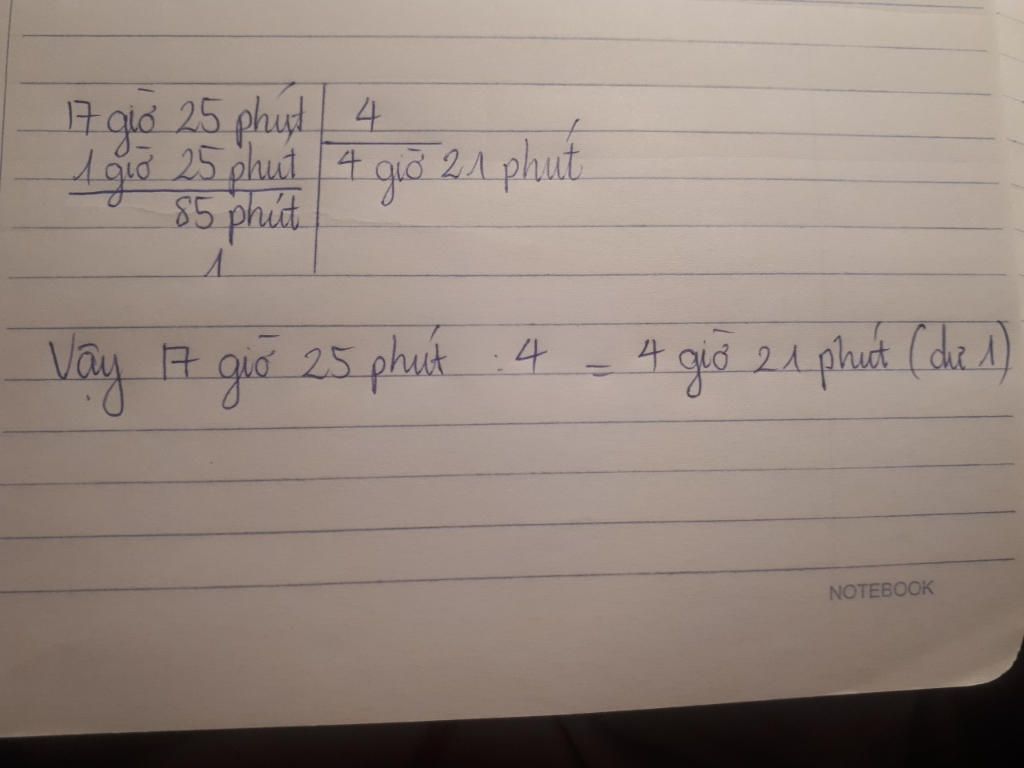 17 giờ 25 phút 4
1 giờ 25 phút 4 giờ 21 phút
85 phút
1
Vậy 17 giờ 25 phút : 4 = 4 giờ 21 phút (dư 1)
NOTEBOOK